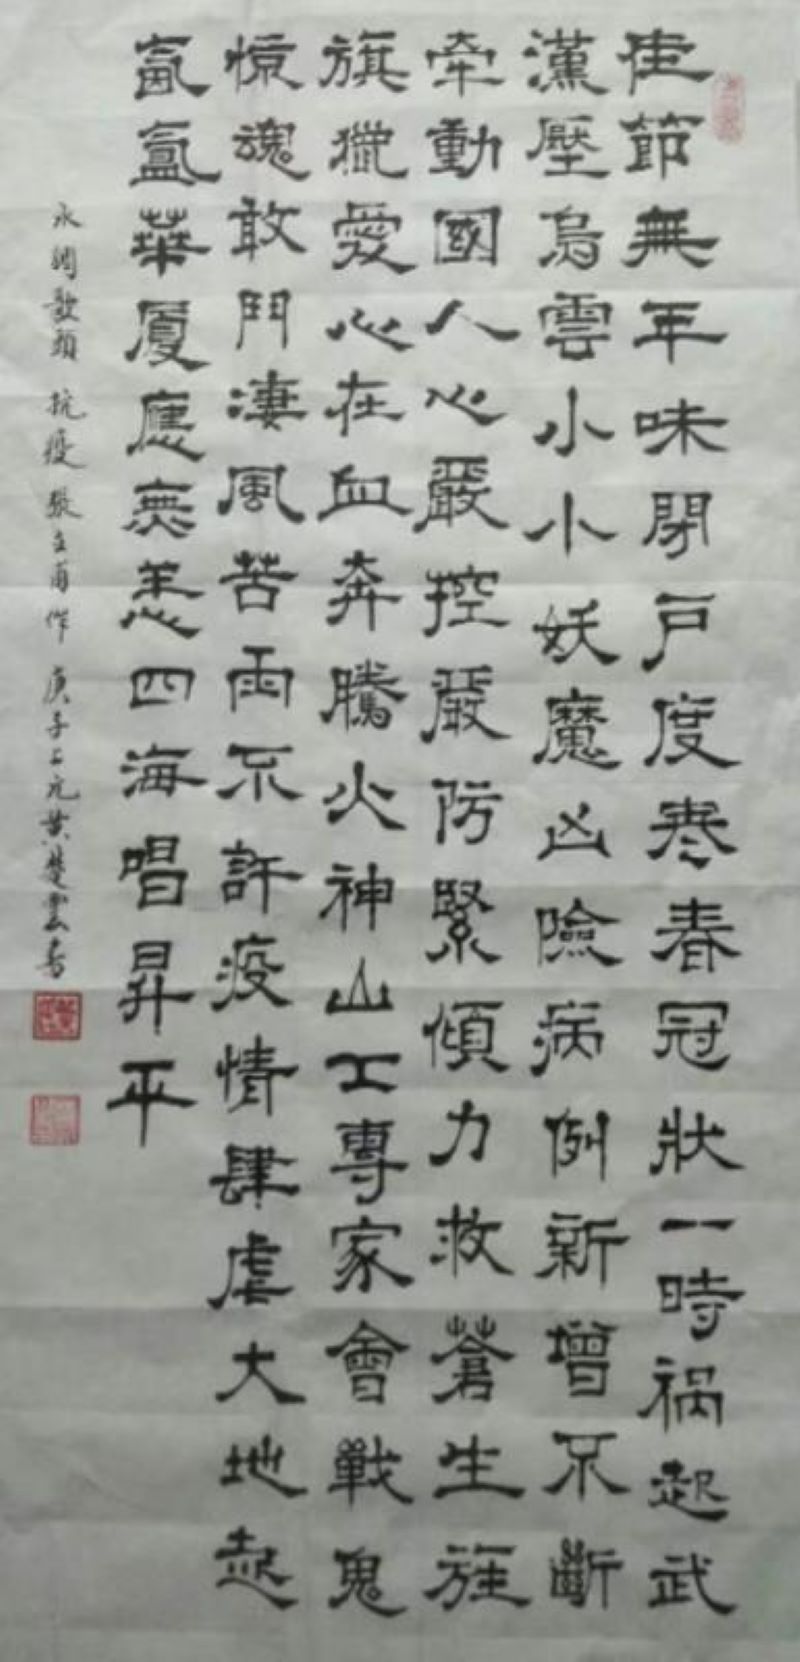 佳節無年味閉戶度春春冠狀一時禍起武
漢壓烏雲小小妖魔凶險病例新增不斷
牽動國人心嚴控嚴防緊傾力救蒼生旌
旗獵愛心在血奔騰火神山工專家會戰鬼
惊魂敢鬥凄風苦雨不許疫情肆虐大地起
氤氳華廈應無恙四海唱昇平
水調歌頭 抗疫 張立甫作 庚子上元黄楚雲書